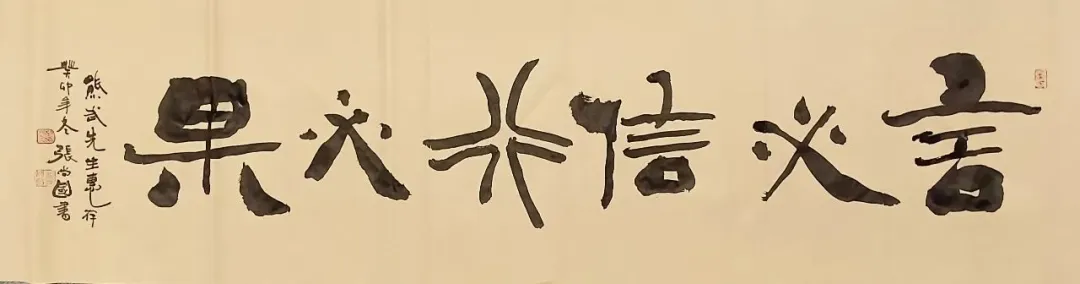 言必信行必果
熊武先生惠存
癸卯年冬張尚國書